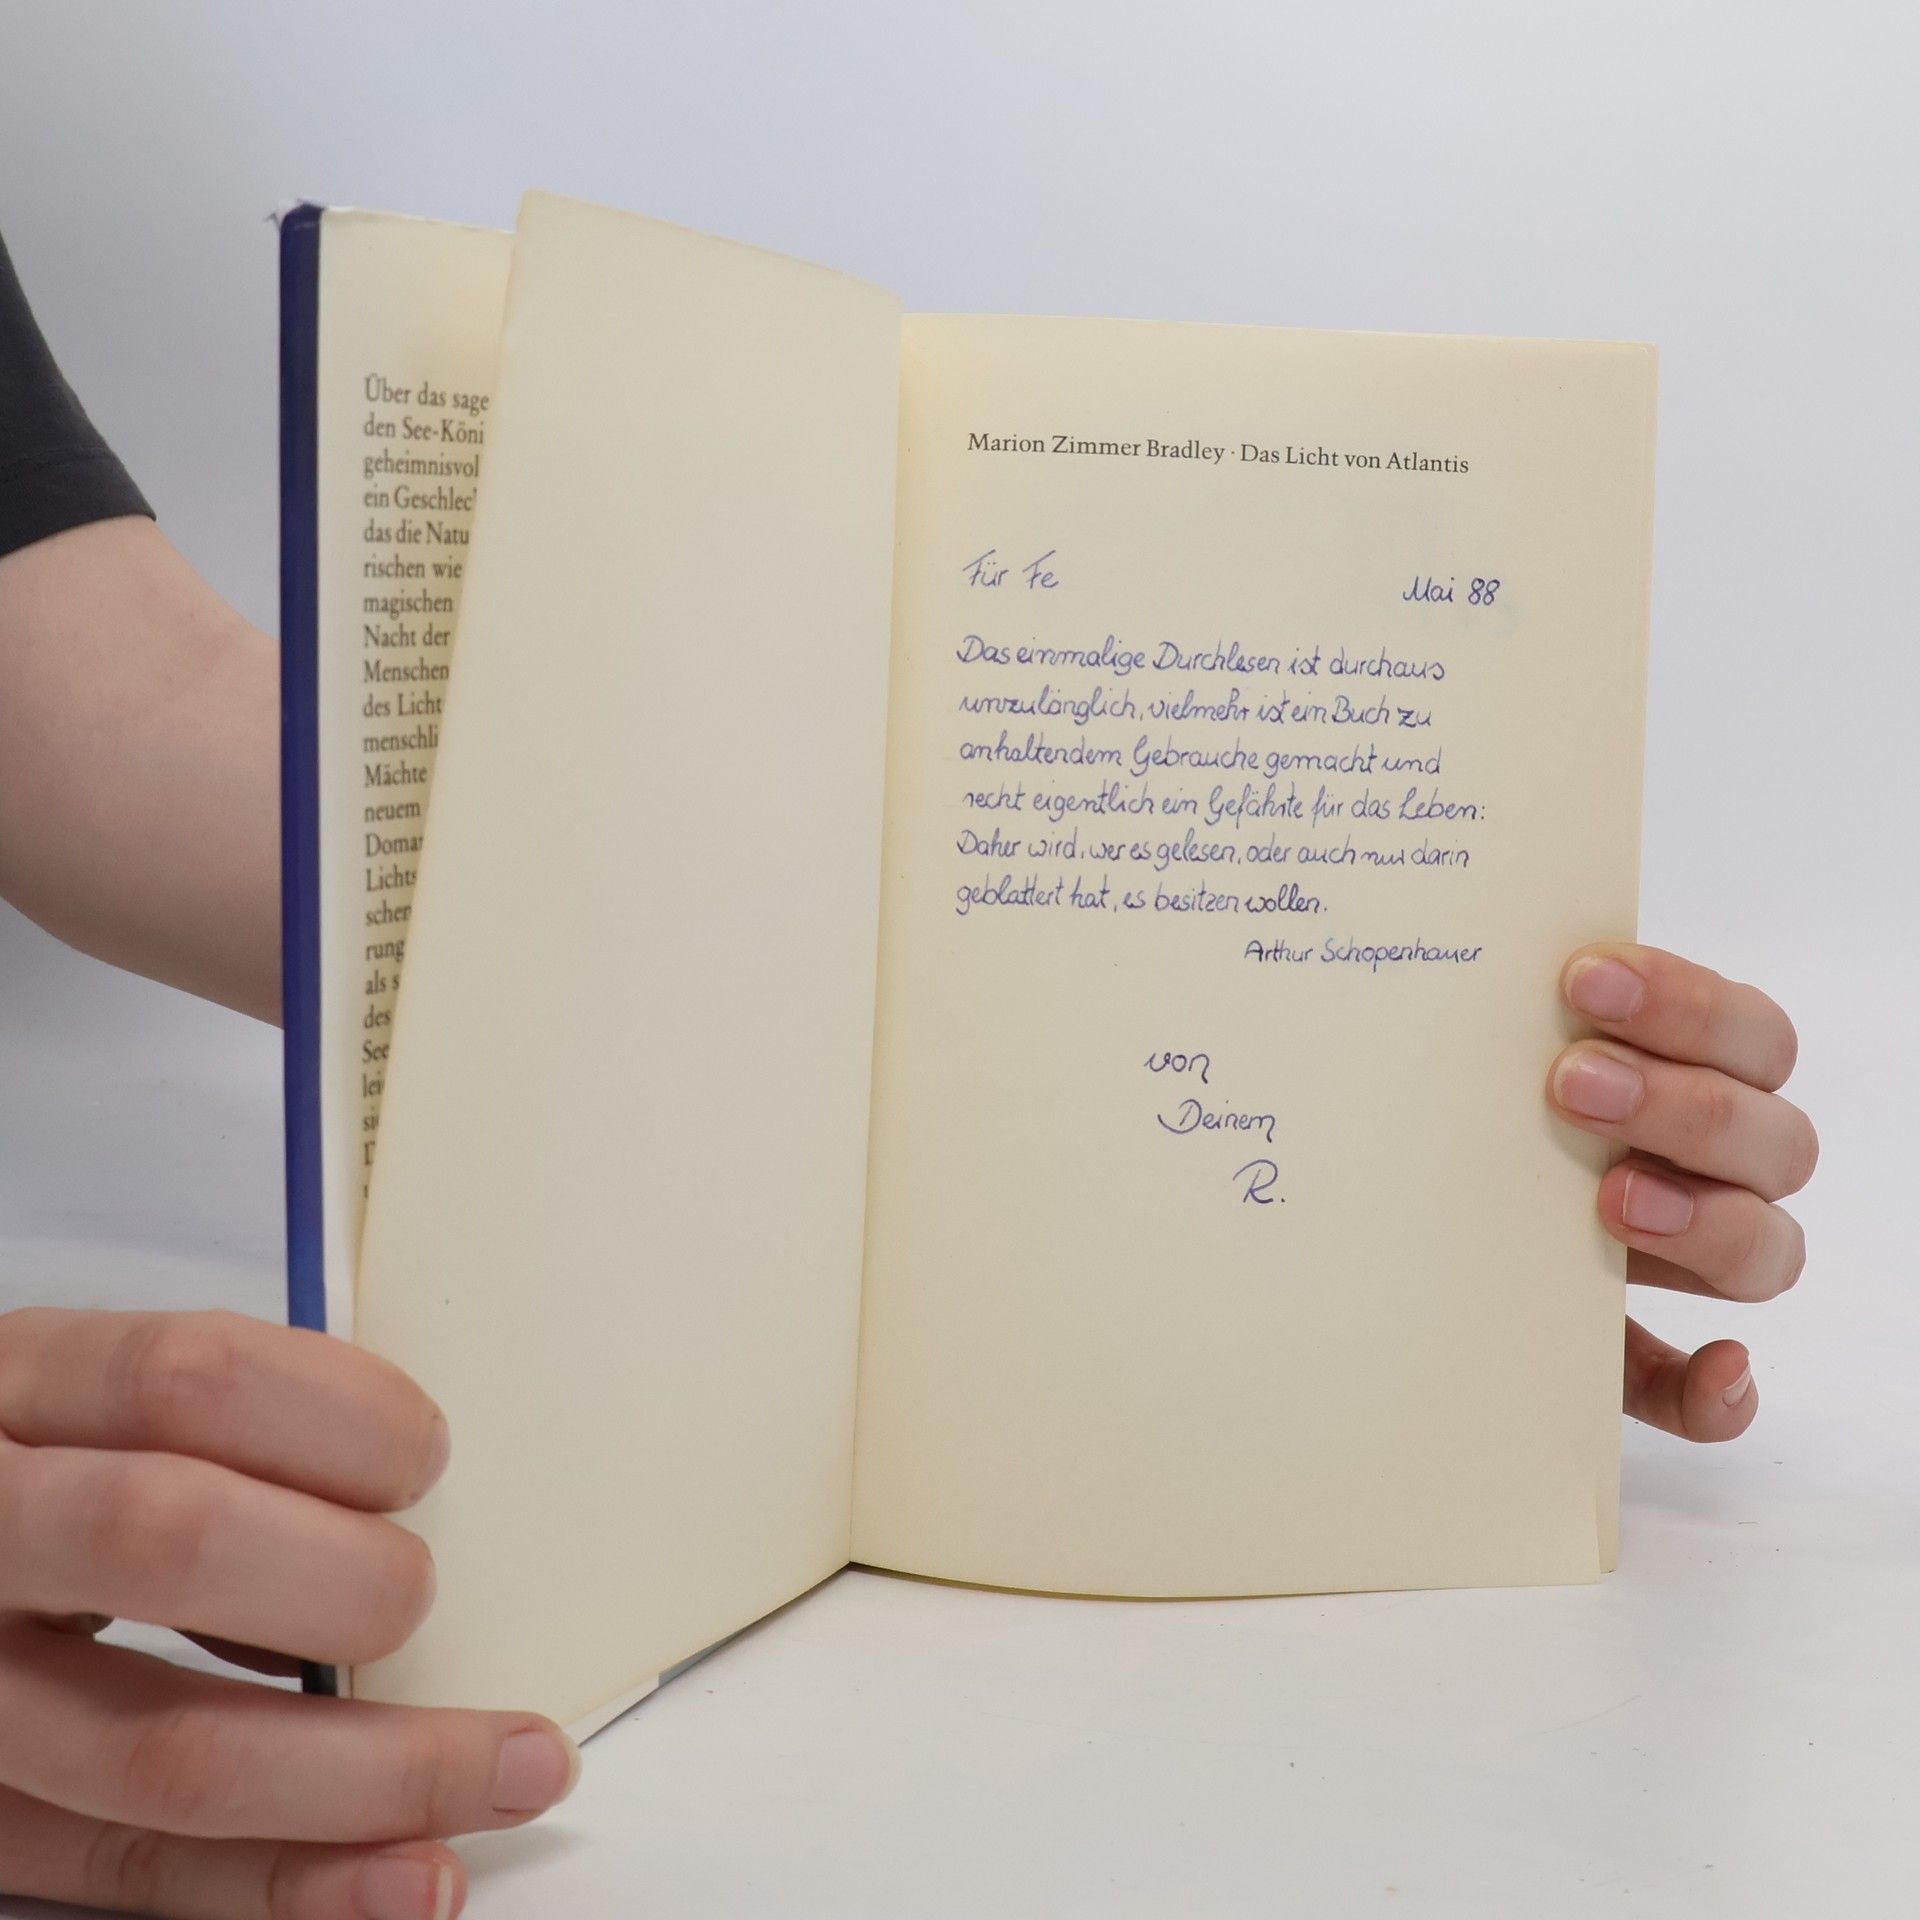 Über das sage
den See-Köni
geheimnisvol
ein Geschlec
das die Natu
rischen wie
magischen
Nacht der
Menschen
des Licht
menschli
Mächte
neuem
Doma
Lichts
schen
rung
als s
des
See
lei
si
D
Marion Zimmer Bradley · Das Licht von Atlantis
Für Fe
Mai 88
Das einmalige Durchlesen ist durchaus
unzulänglich, vielmehr ist ein Buch zu
anhaltendem Gebrauche gemacht und
recht eigentlich ein Gefährte für das Leben:
Daher wird, wer es gelesen, oder auch nur darin
geblättert hat, es besitzen wollen.
Arthur Schopenhauer
von
Deinem
R.